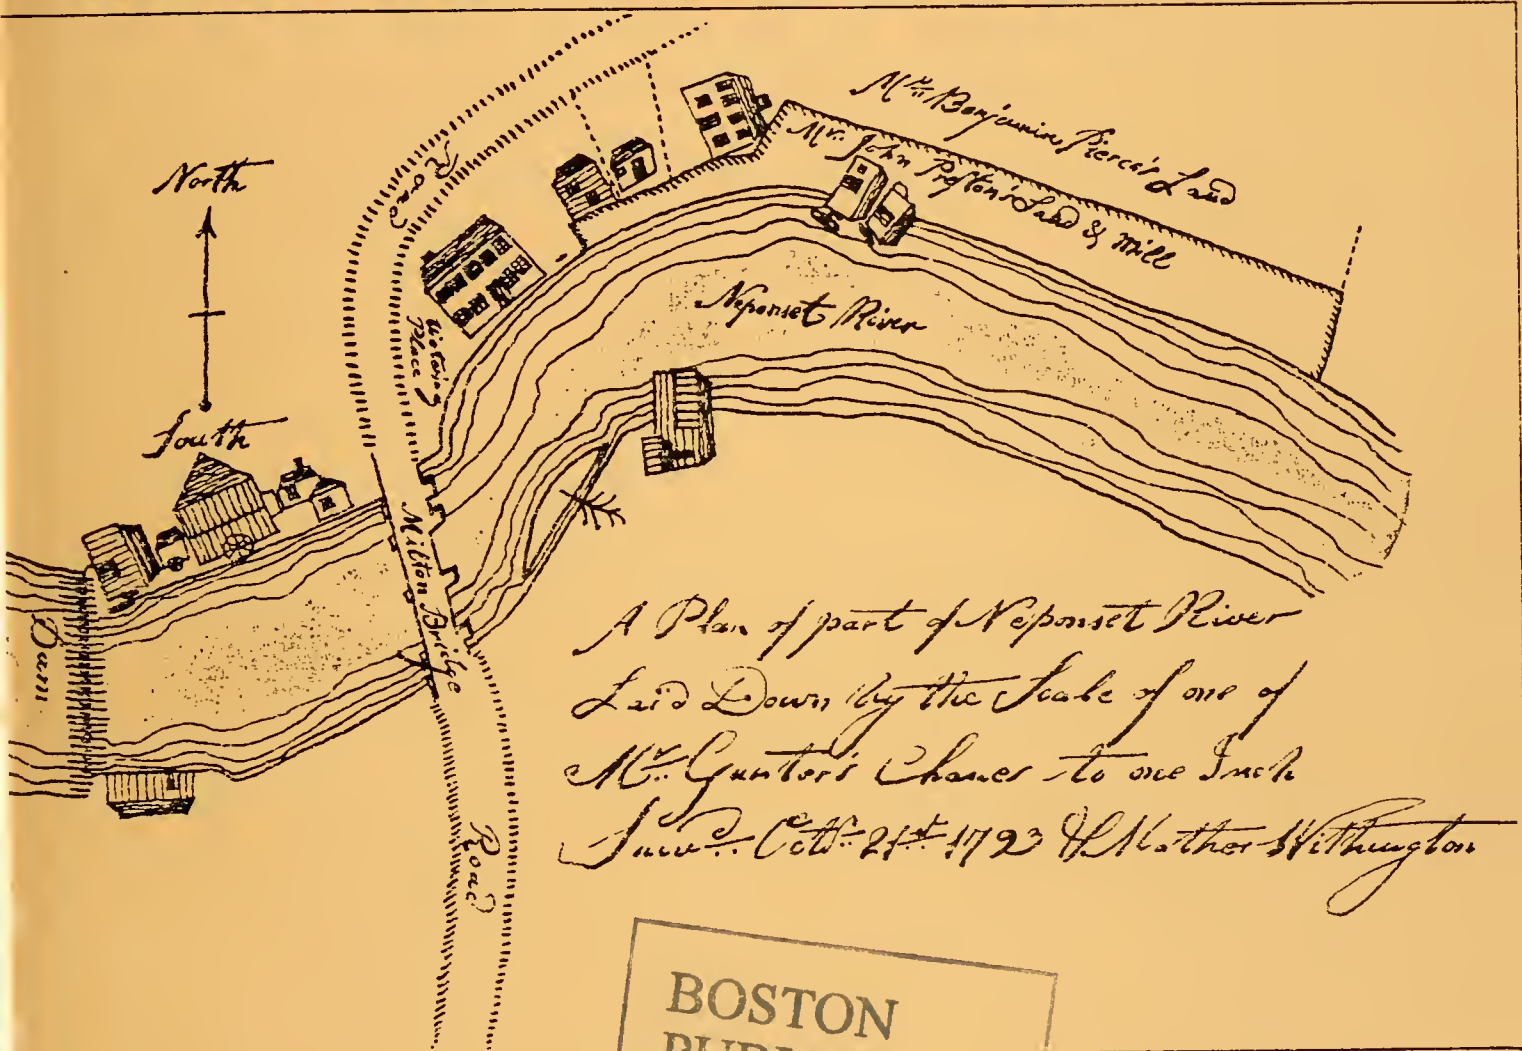 North
South
Road
Mr. Benjamin Pierce's Land
Mr. John Preston's Land & Mill
Neponset River
Watering
Place
Milton Bridge
Dam
Road
A Plan of part of Neponset River
Laid Down by the Scale of one of
Mr. Gunter's Chanes to one Inch
Octr. 21st. 1793 Mather Withington
BOSTON